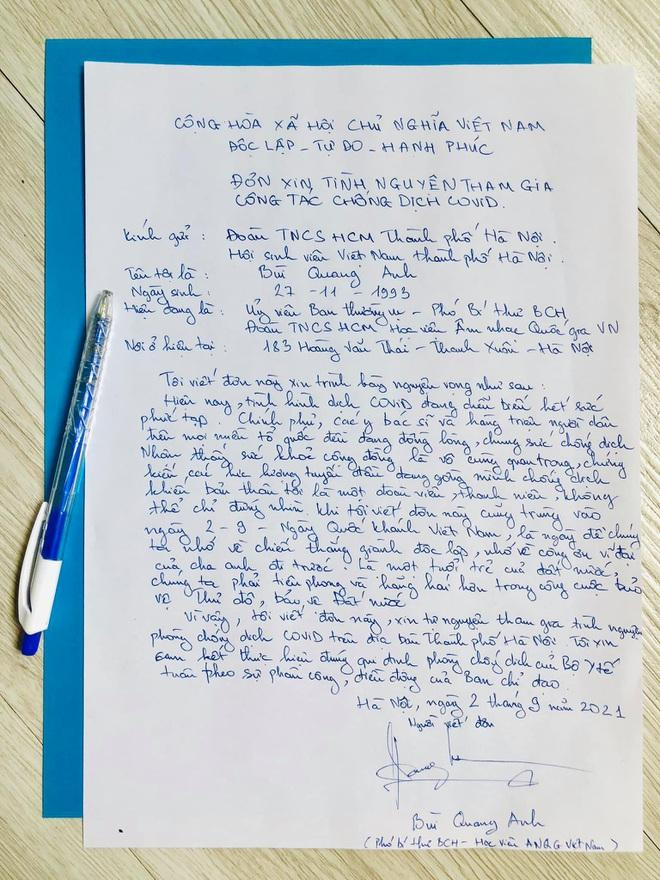 CỘNG HÒA XÃ HỘI CHỦ NGHĨA VIỆT NAM
ĐỘC LẬP - TỰ DO - HẠNH PHÚC
ĐƠN XIN TÌNH NGUYỆN THAM GIA
CÔNG TÁC CHỐNG DỊCH COVID.
Kính gửi : Đoàn TNCS HCM Thành phố Hà Nội.
Hội sinh viên Việt Nam thành phố Hà Nội.
Tên tôi là : Bùi Quang Anh
Ngày sinh : 27 - 11 - 1993
Hiện đang là : Ủy viên Ban thường vụ - Phó Bí thư BCH
Đoàn TNCS HCM Học viện Âm nhạc Quốc gia VN
Nơi ở hiện tại : 183 Hoàng Văn Thái - Thanh Xuân - Hà Nội
Tôi viết đơn này xin trình bày nguyện vọng như sau :
Hiện nay, tình hình dịch COVID đang diễn biến hết sức
phức tạp. Chính phủ, các y bác sĩ và hàng triệu người dân
trên mọi miền tổ quốc đều đang đồng lòng, chung sức chống dịch
Nhận thấy sức khoẻ cộng đồng là vô cùng quan trọng, chứng
kiến các lực lượng tuyến đầu đang gồng mình chống dịch
khiến bản thân tôi là một đoàn viên, thanh niên, không
thể chỉ đứng nhìn. Khi tôi viết đơn này cũng trùng vào
ngày 2 - 9 Ngày Quốc Khánh Việt Nam, là ngày để chúng
ta nhớ về chiến thắng giành độc lập, nhớ về công ơn vĩ đại
của cha anh đi trước. Là một tuổi trẻ của đất nước,
chúng ta phải tiên phong và hăng hái hơn trong công cuộc bảo
vệ Thủ đô, bảo vệ Đất nước
Vì vậy, tôi viết đơn này, xin tự nguyện tham gia tình nguyện
phòng chống dịch COVID trên địa bàn Thành phố Hà Nội. Tôi xin
cam kết thực hiện đúng qui định phòng chống dịch của Bộ Y tế
tuân theo sự phân công, điều động của Ban chỉ đạo.
Hà Nội, ngày 2 tháng 9 năm 2021
Người viết đơn
Bùi Quang Anh
(Phó bí thư BCH - Học viện ANQG Việt Nam)